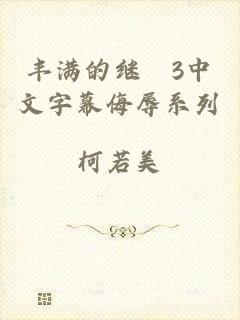 丰满的继 3中
文字幕侮辱系列
柯若美